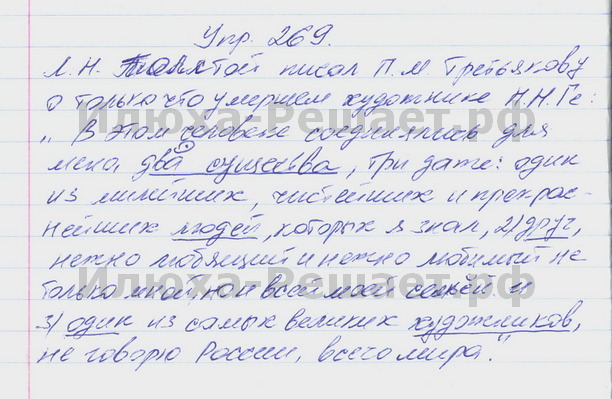 Упр. 269.
Л.Н. Толстой писал П.М. Третьякову
о только что умершем художнике Н.Н.Ге:
„ В этом человеке соединились для
меня два существа, три даже: один
из милейших, чистейших и прекрас-
нейших людей, которых я знал, 2) друг,
нежно любящий и нежно любимый не
только мной, но и всей моей семьёй и
3) один из самых великих художников,
не говорю России, всего мира".
Илюха-Решает.рф
Илюха-Решает.рф